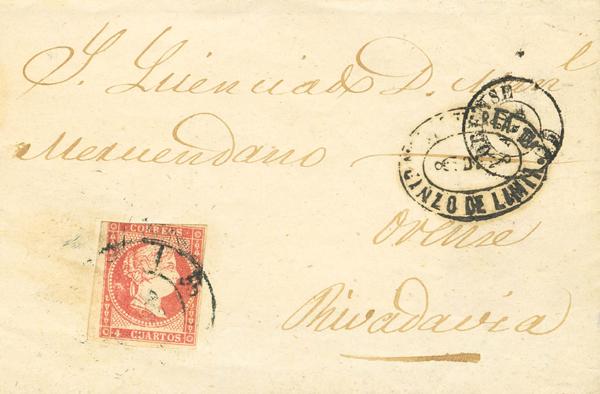 S. Licenciado D. Man.l
Meruendano
Orense
Rivadavia
CORREOS
4 CUARTOS
GINZO DE LIMIA
ORENSE